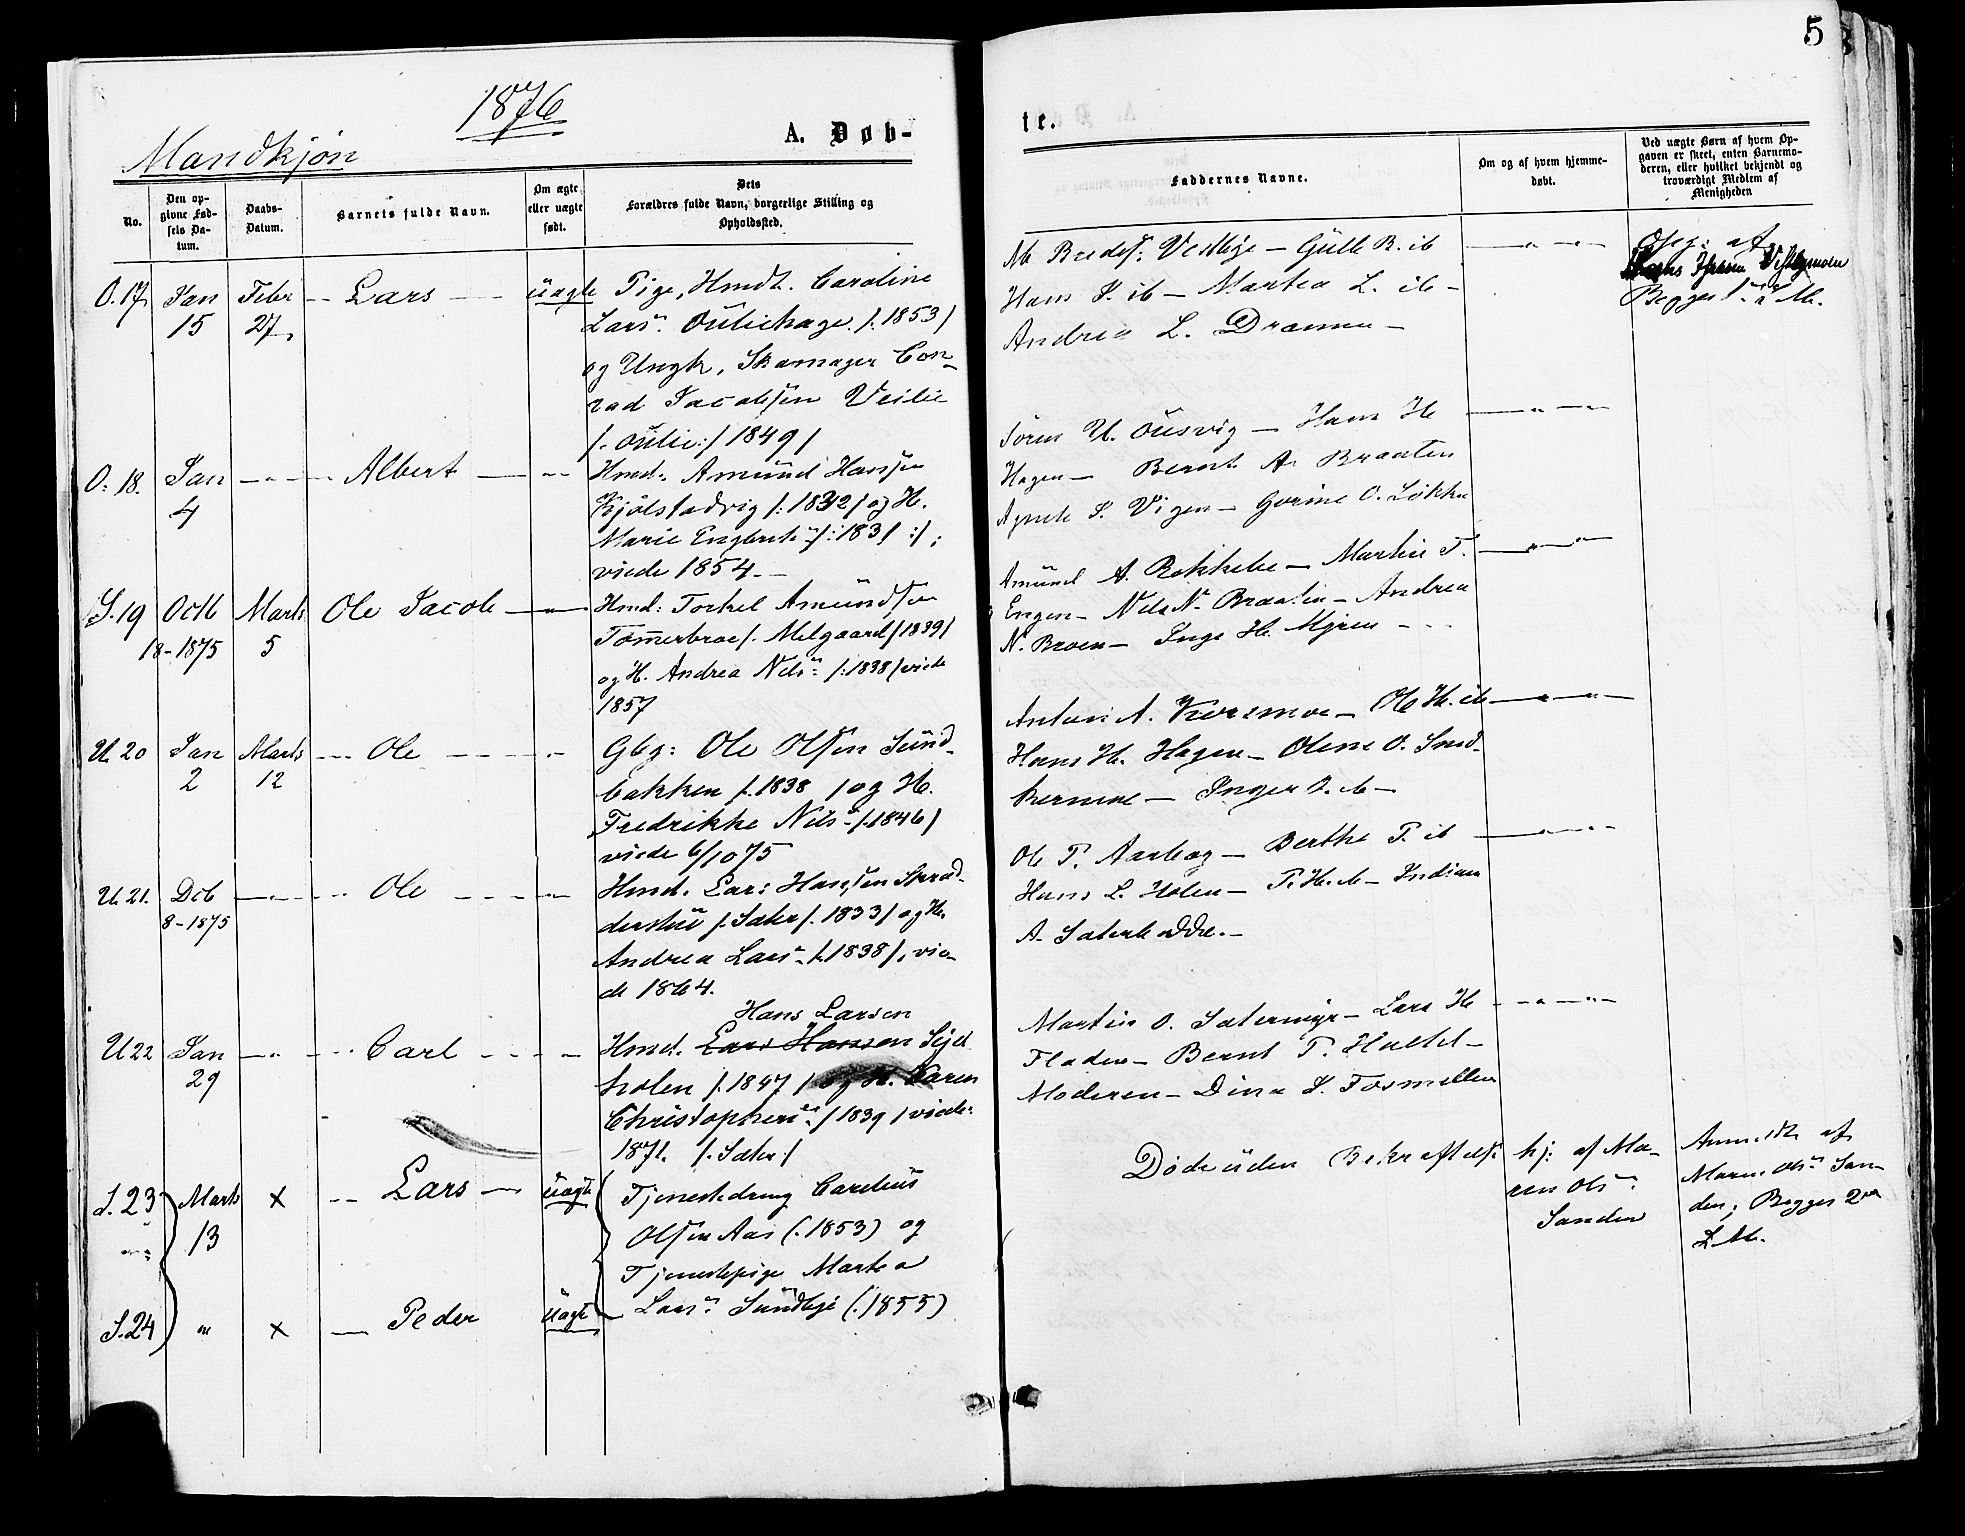 5
1876
Mandkjøn
A. Døb-
te.
No.
Den op-
givne Fød-
sels Da-
tum.
Daabs-
Datum.
Barnets fulde Navn.
Om ægte
eller uægte
født.
Dets
Forældres fulde Navn, borgerlige Stilling og
Opholdssted.
Faddernes Navne.
Om og af hvem hjemme-
døbt.
Ved uægte Børn af hvem Op-
gaven er skeet, enten Barnemo-
deren, eller hvilket bekjendt og
troværdigt Medlem af
Menigheden
O. 17. Jan 15 Febr 27. Lars uægte Pige, Hmdt. Caroline
Larsn. Ouliehage /: 1853/
og Ungk. Skomager Con-
rad Jacobsen Veslie
/: Oulie :/ 1849/
Hans ib - Marthea L. ib -
Andrea L. Dramm -
Opg: af
Begges 1. M.
O. 18. Jan 4 Albert Hmd. Amund Hansen
Kjølstadvig /: 1832/ og H.
Marie Engbretsn /: 1831 :/;
viede 1854. -
Søren U. Ousvig - Hans H.
Hagen - Bernt A. Braaten
Agnete Vigen - Gorine O. Løkke
S. 19 Octb 18-1875 Marts 5 Ole Jacob Hmd: Torkel Amundsen
Tømerbraae /: Melgaard /1839/
og H. Andrea Nilsn: /: 1838/ viede
1857
Amund A. Rokkebe - Martin T.
Engen - Nils N. Braaten - Andrea
N. Broen - Inge H. Myren - - -
U. 20 Jan 2 Marts 12 Ole Gbg: Ole Olsen Sund-
bakken /: 1838 / og H.
Fredrikke Nilsn. /: 1846/
viede 6/10 75
Anton A. Korsmoe - Ole H. ib
Hans H. Hagen - Olene O. Sund-
- Inger ib -
U. 21. Dcb 8-1875 Ole Hmd. Lars Hansen
/: Sæter /: 1833/ og H.
Andrea Larsn. /: 1838/, vie-
de 1864.
Ole P. Aasbag - Berthe P. ib
Hans L. Holen - P. H. ib - Indiane
A. Sæterbødde. -
U 22 Jan 29 Carl Hans Larsen
Hmd. Lars Hansen
holen /: 1847 / og H. Karen
Christophersn: / 1839 / viede:
1871. /: Sæter :/
Martin O. Sætermyr - Lars H.
Fladen - Bernt P. -
Moderen - Dina Fosmellen
S. 23 Marts 13 x Lars uægte Tjenestedreng Carelius
Olsen Aas (: 1853) og
Tjenestepige Marthea
Larsn. Sundbye (: 1855)
Døde uden Bekræftelse
hj: af Ma-
ren Olsn:
Sanden
Anmeldt af
Maren Olsn San-
den; Begges 2den
L. M.
S. 24 " x Peder uægte